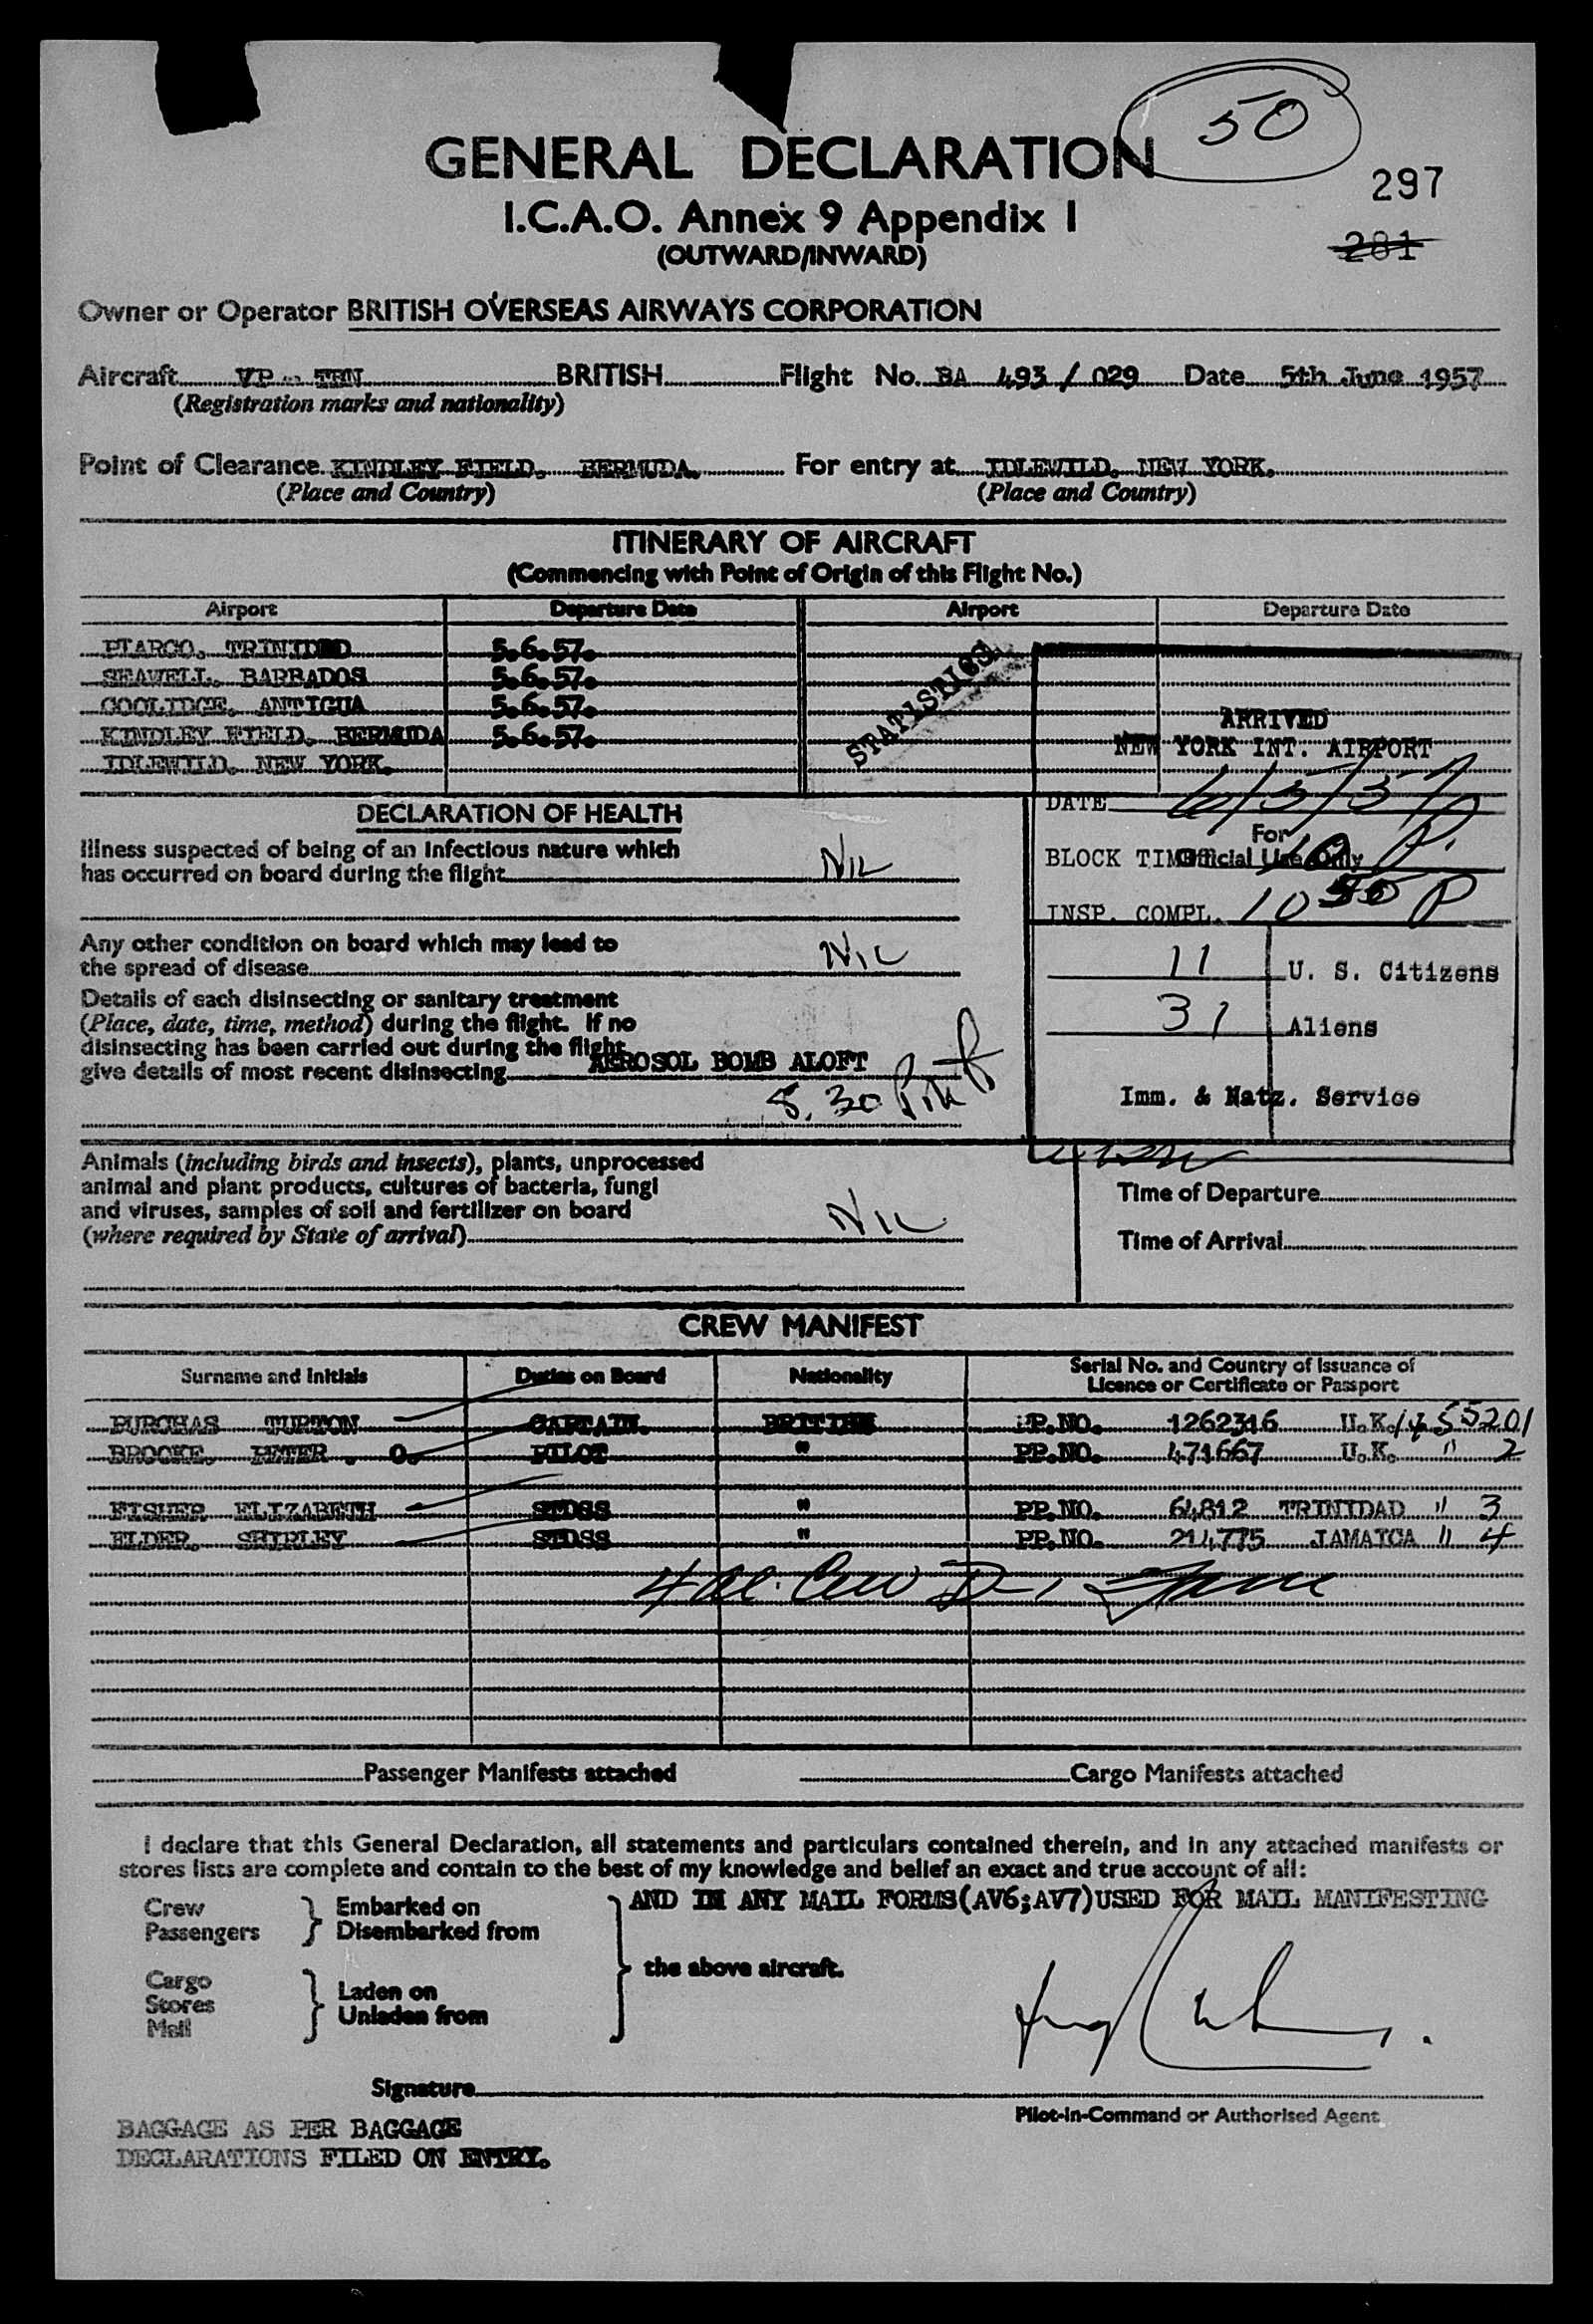 50
GENERAL DECLARATION
297
I.C.A.O. Annex 9 Appendix 1
281
(OUTWARD/INWARD)
Owner or Operator BRITISH OVERSEAS AIRWAYS CORPORATION
Aircraft VP - TBN BRITISH Flight No. BA 493 / 029 Date 5th June 1957
(Registration marks and nationality)
Point of Clearance KINDLEY FIELD, BERMUDA. For entry at IDLEWILD, NEW YORK.
(Place and Country) (Place and Country)
ITINERARY OF AIRCRAFT
(Commencing with Point of Origin of this Flight No.)
Airport Departure Date Airport Departure Date
PIARCO, TRINIDAD 5.6.57.
SEAWELL, BARBADOS 5.6.57.
COOLIDGE, ANTIGUA 5.6.57.
KINDLEY FIELD, BERMUDA 5.6.57.
IDLEWILD, NEW YORK.
STATISTICS
ARRIVED
NEW YORK INT. AIRPORT
DATE 6/5/57
For
Official Use Only
BLOCK TIME 10 P.
INSP. COMPL. 10 50 P
11 U. S. Citizens
31 Aliens
Imm. & Natz. Service
DECLARATION OF HEALTH
Illness suspected of being of an infectious nature which
has occurred on board during the flight Nil
Any other condition on board which may lead to
the spread of disease Nil
Details of each disinsecting or sanitary treatment
(Place, date, time, method) during the flight. If no
disinsecting has been carried out during the flight
give details of most recent disinsecting AEROSOL BOMB ALOFT
8.30 PM
Animals (including birds and insects), plants, unprocessed
animal and plant products, cultures of bacteria, fungi
and viruses, samples of soil and fertilizer on board
(where required by State of arrival) Nil
Time of Departure
Time of Arrival
CREW MANIFEST
Surname and Initials Duties on Board Nationality Serial No. and Country of Issuance of
Licence or Certificate or Passport
PURCHAS TURTON CAPTAIN. BRITISH PP.NO. 1262316 U.K. 1455201
BROOKE, PETER . O. PILOT " PP.NO. 471667 U.K. " 2
FISHER ELIZABETH STDSS " PP.NO. 64812 TRINIDAD " 3
ELDER, SHIRLEY STDSS " PP.NO. 214775 JAMAICA " 4
4 al. Crew D-1
Passenger Manifests attached Cargo Manifests attached
I declare that this General Declaration, all statements and particulars contained therein, and in any attached manifests or
stores lists are complete and contain to the best of my knowledge and belief an exact and true account of all:
AND IN ANY MAIL FORMS(AV6;AV7)USED FOR MAIL MANIFESTING
Crew Embarked on
Passengers Disembarked from
the above aircraft.
Cargo
Stores Laden on
Mail Unladen from
Signature
Pilot-in-Command or Authorised Agent
BAGGAGE AS PER BAGGAGE
DECLARATIONS FILED ON ENTRY.